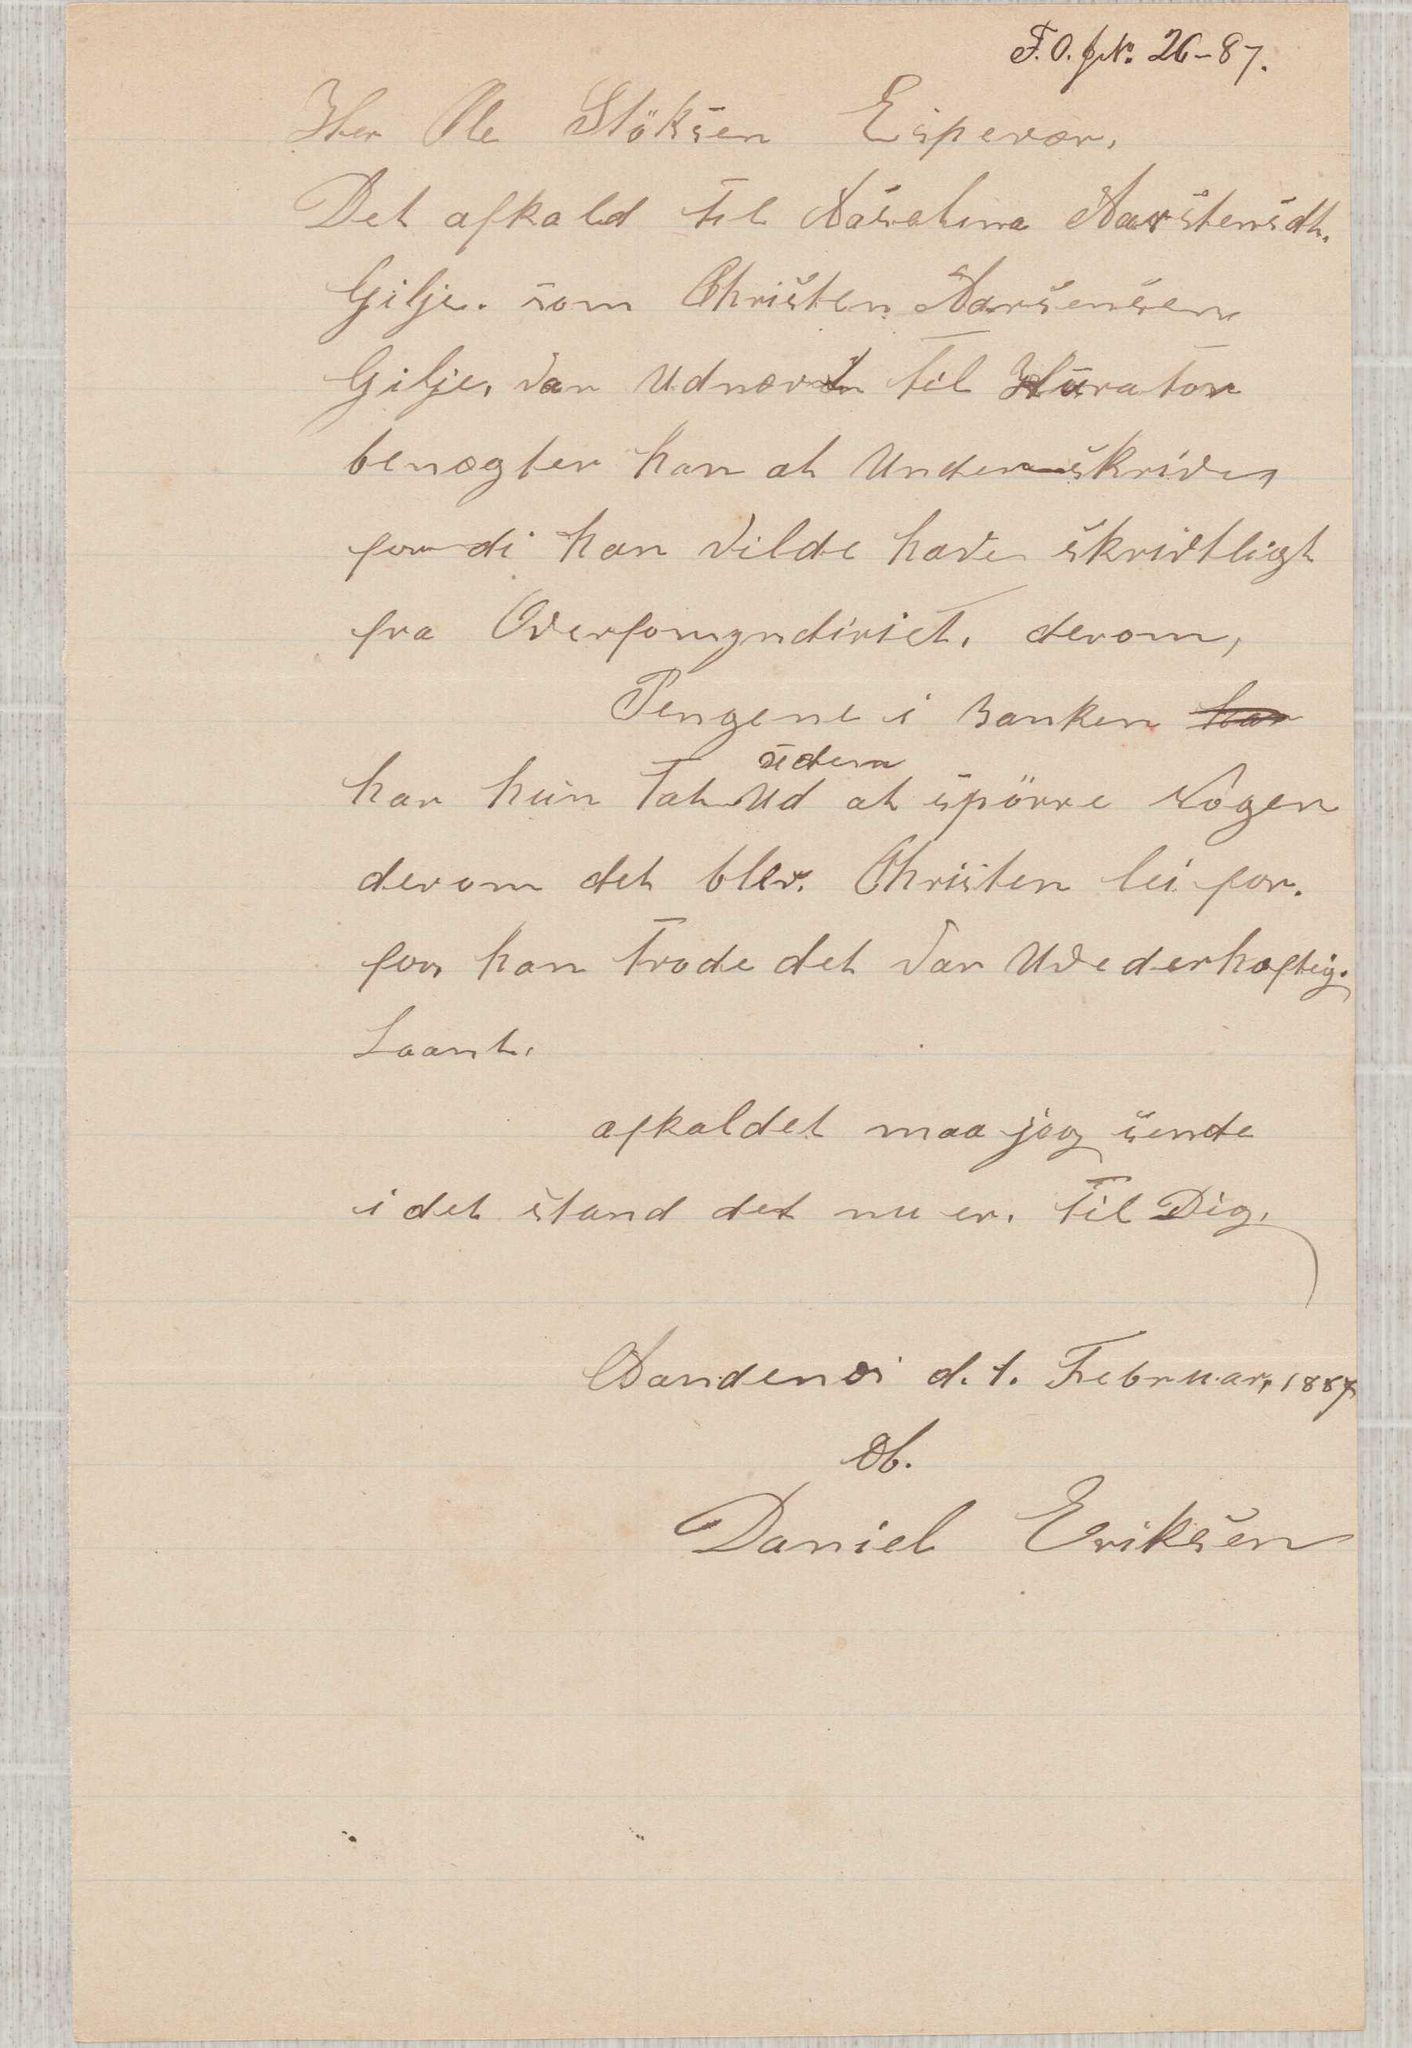 F.O. JN. 26-87.
Her Ole Stöksen Espevær.
Det afkald til Aarstensdt.
Gilje. som Christen Aarsensen
Gilje, var Udnævn til Kurator
benægter han at Underskrive,
fordi han vilde have skrivtligt
fra Overformynderiet. derom,
Pengene i Banken
har hun Tat Ud uden at spörre Nogen
derom det blev. Christen lei for.
for han Trode det var Uvederhæftig.
Laant.
afkaldet maa jeg sende
i det stand det nu er. til Dig.
d. 1. Februar, 1887
Db.
Daniel Eriksen